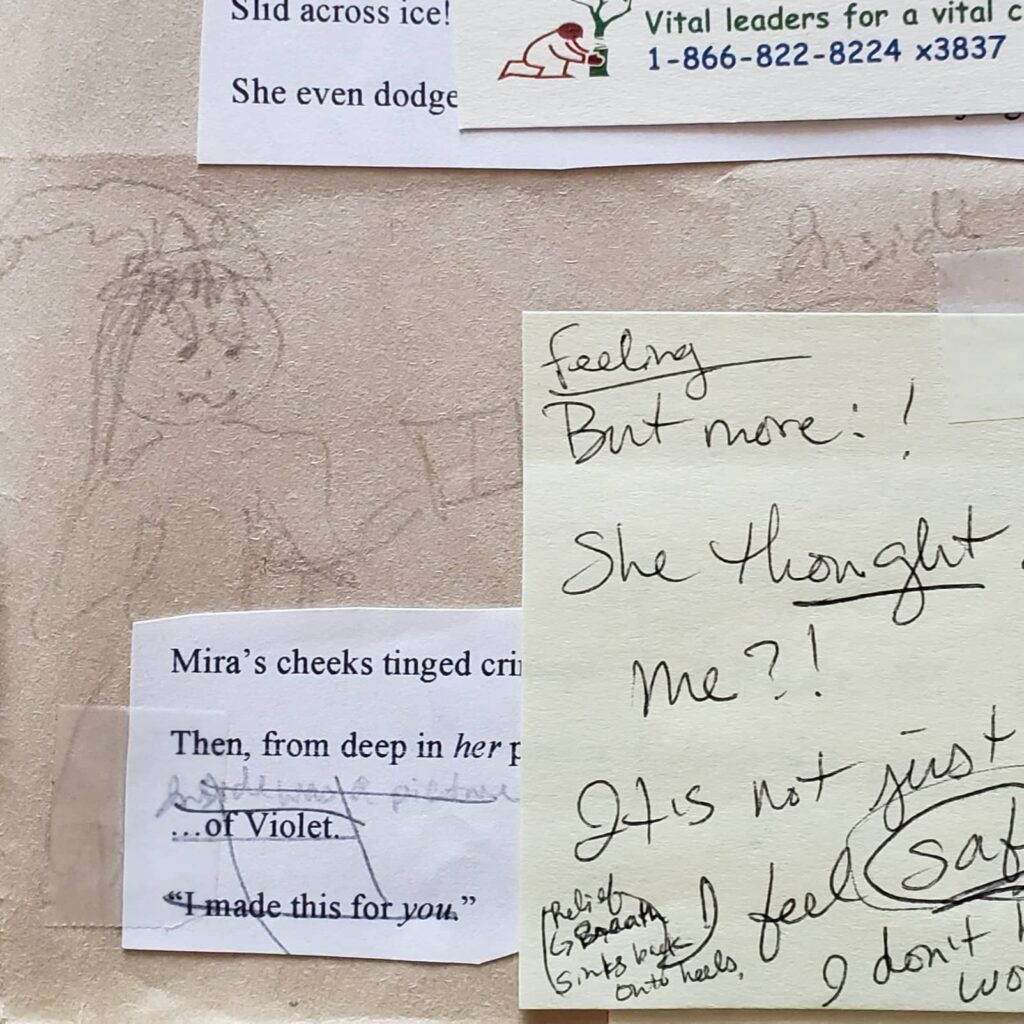 Slid across ice!
She even dodge
Vital leaders for a vital c
1-866-822-8224 x3837
Inside
feeling
But more: !
She thought
me?!
It is not just
I feel saf
I don't
wo
(Relief
↳ Breath
Sinks back
onto heels,
Mira's cheeks tinged cri
Then, from deep in her p
Inside was a picture
...of Violet.
"I made this for you."